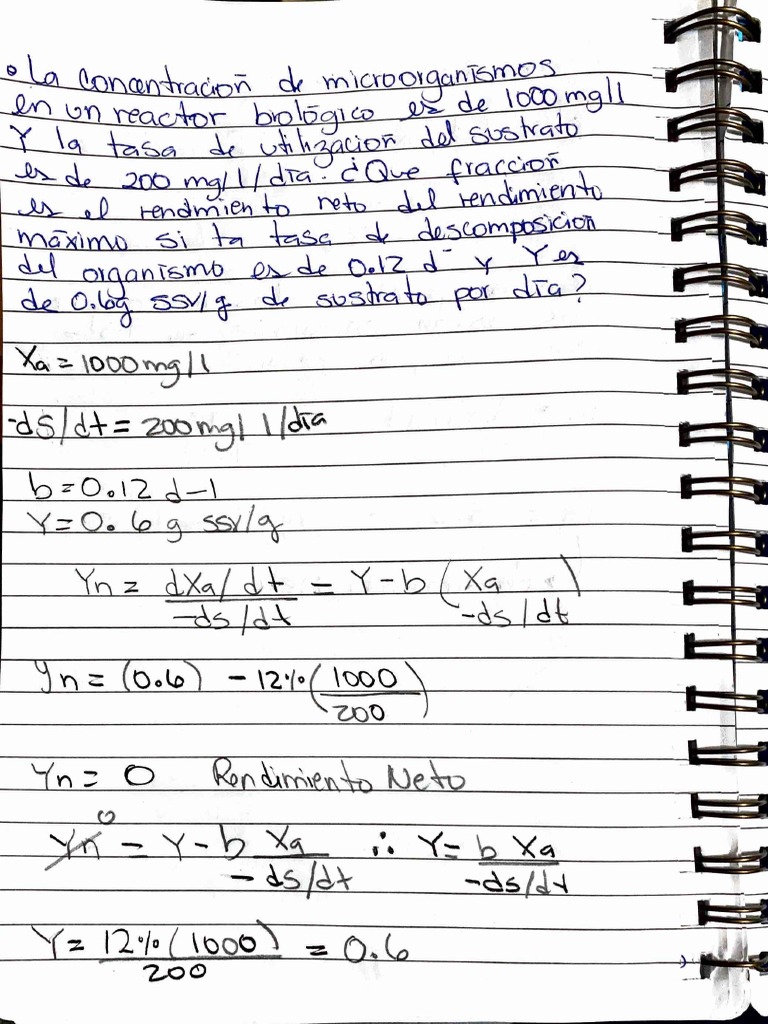 • La concentración de microorganismos
en un reactor biológico es de 1000 mg/l
Y la tasa de utilización del sustrato
es de 200 mg/l/día. ¿Que fracción
es el rendmiento neto del rendimiento
máximo si ta tasa de descomposición
del organismo es de 0.12 d⁻ y Y es
de 0.6g ssv/g de sustrato por día?
Xa = 1000 mg/l
-ds/dt = 200 mg/l/día
b = 0.12 d-1
Y = 0.6 g ssv/g
Yn = dXa/dt / -ds/dt = Y - b ( Xa / -ds/dt )
Yn = (0.6) - 12% ( 1000 / 200 )
Yn = 0 Rendimiento Neto
Yn⁰ = Y - b Xa / -ds/dt ∴ Y = b Xa / -ds/dt
Y = 12% (1000) / 200 = 0.6